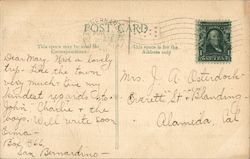 POST CARD
This space may be used for Correspondence
This space is for the Address only
Dear May. Had a lovely
trip. Like the town
very much. Give my
kindest regards to
John, Charlie & the
boys. Will write soon
Erma
Box 566
San Bernardino
Mrs. J. A. Osterdock
Everett St. Blanding
Alameda, Cal